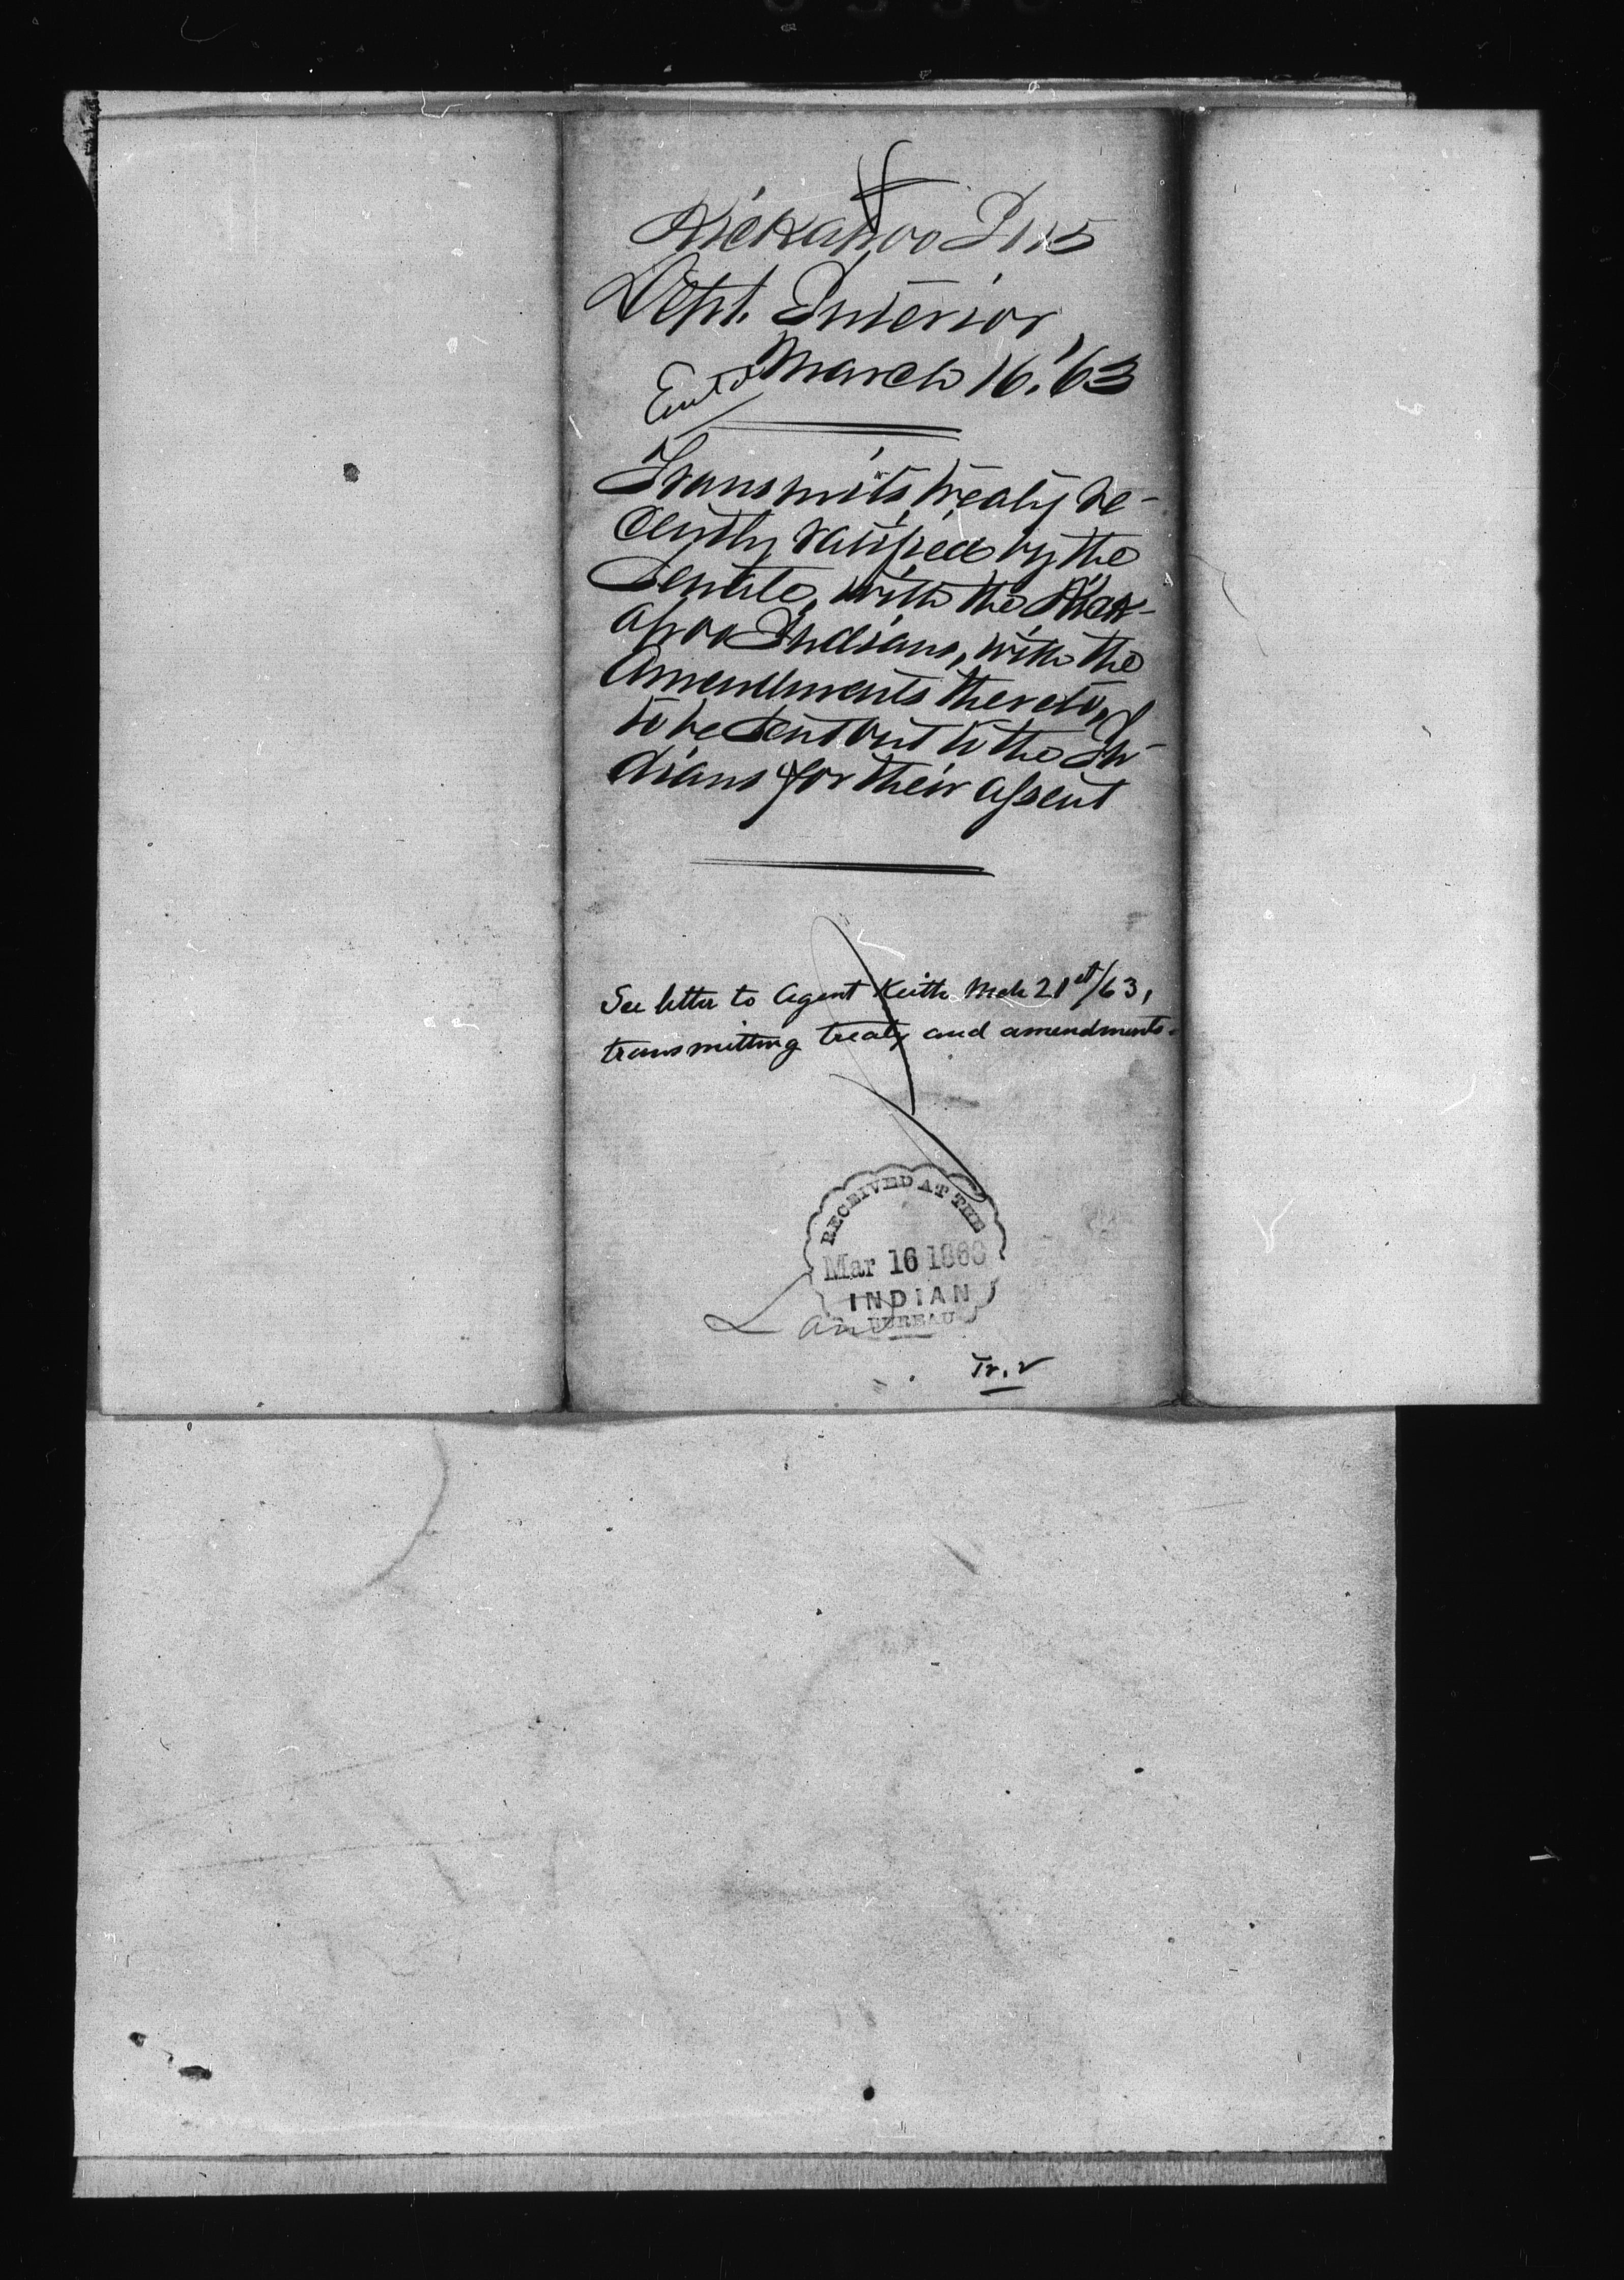 Kickapoo I 115
Dept. Interior
March 16, '63
Transmits treaty re-
cently ratified by the
Senate, with the Kick-
apoo Indians, with the
Amendments thereto,
to be sent out to the In-
dians for their assent
See letter to Agent Keith Mch 21st/63,
transmitting treaty and amendments.
RECEIVED AT THE
Mar 16 1863
INDIAN
BUREAU
Land